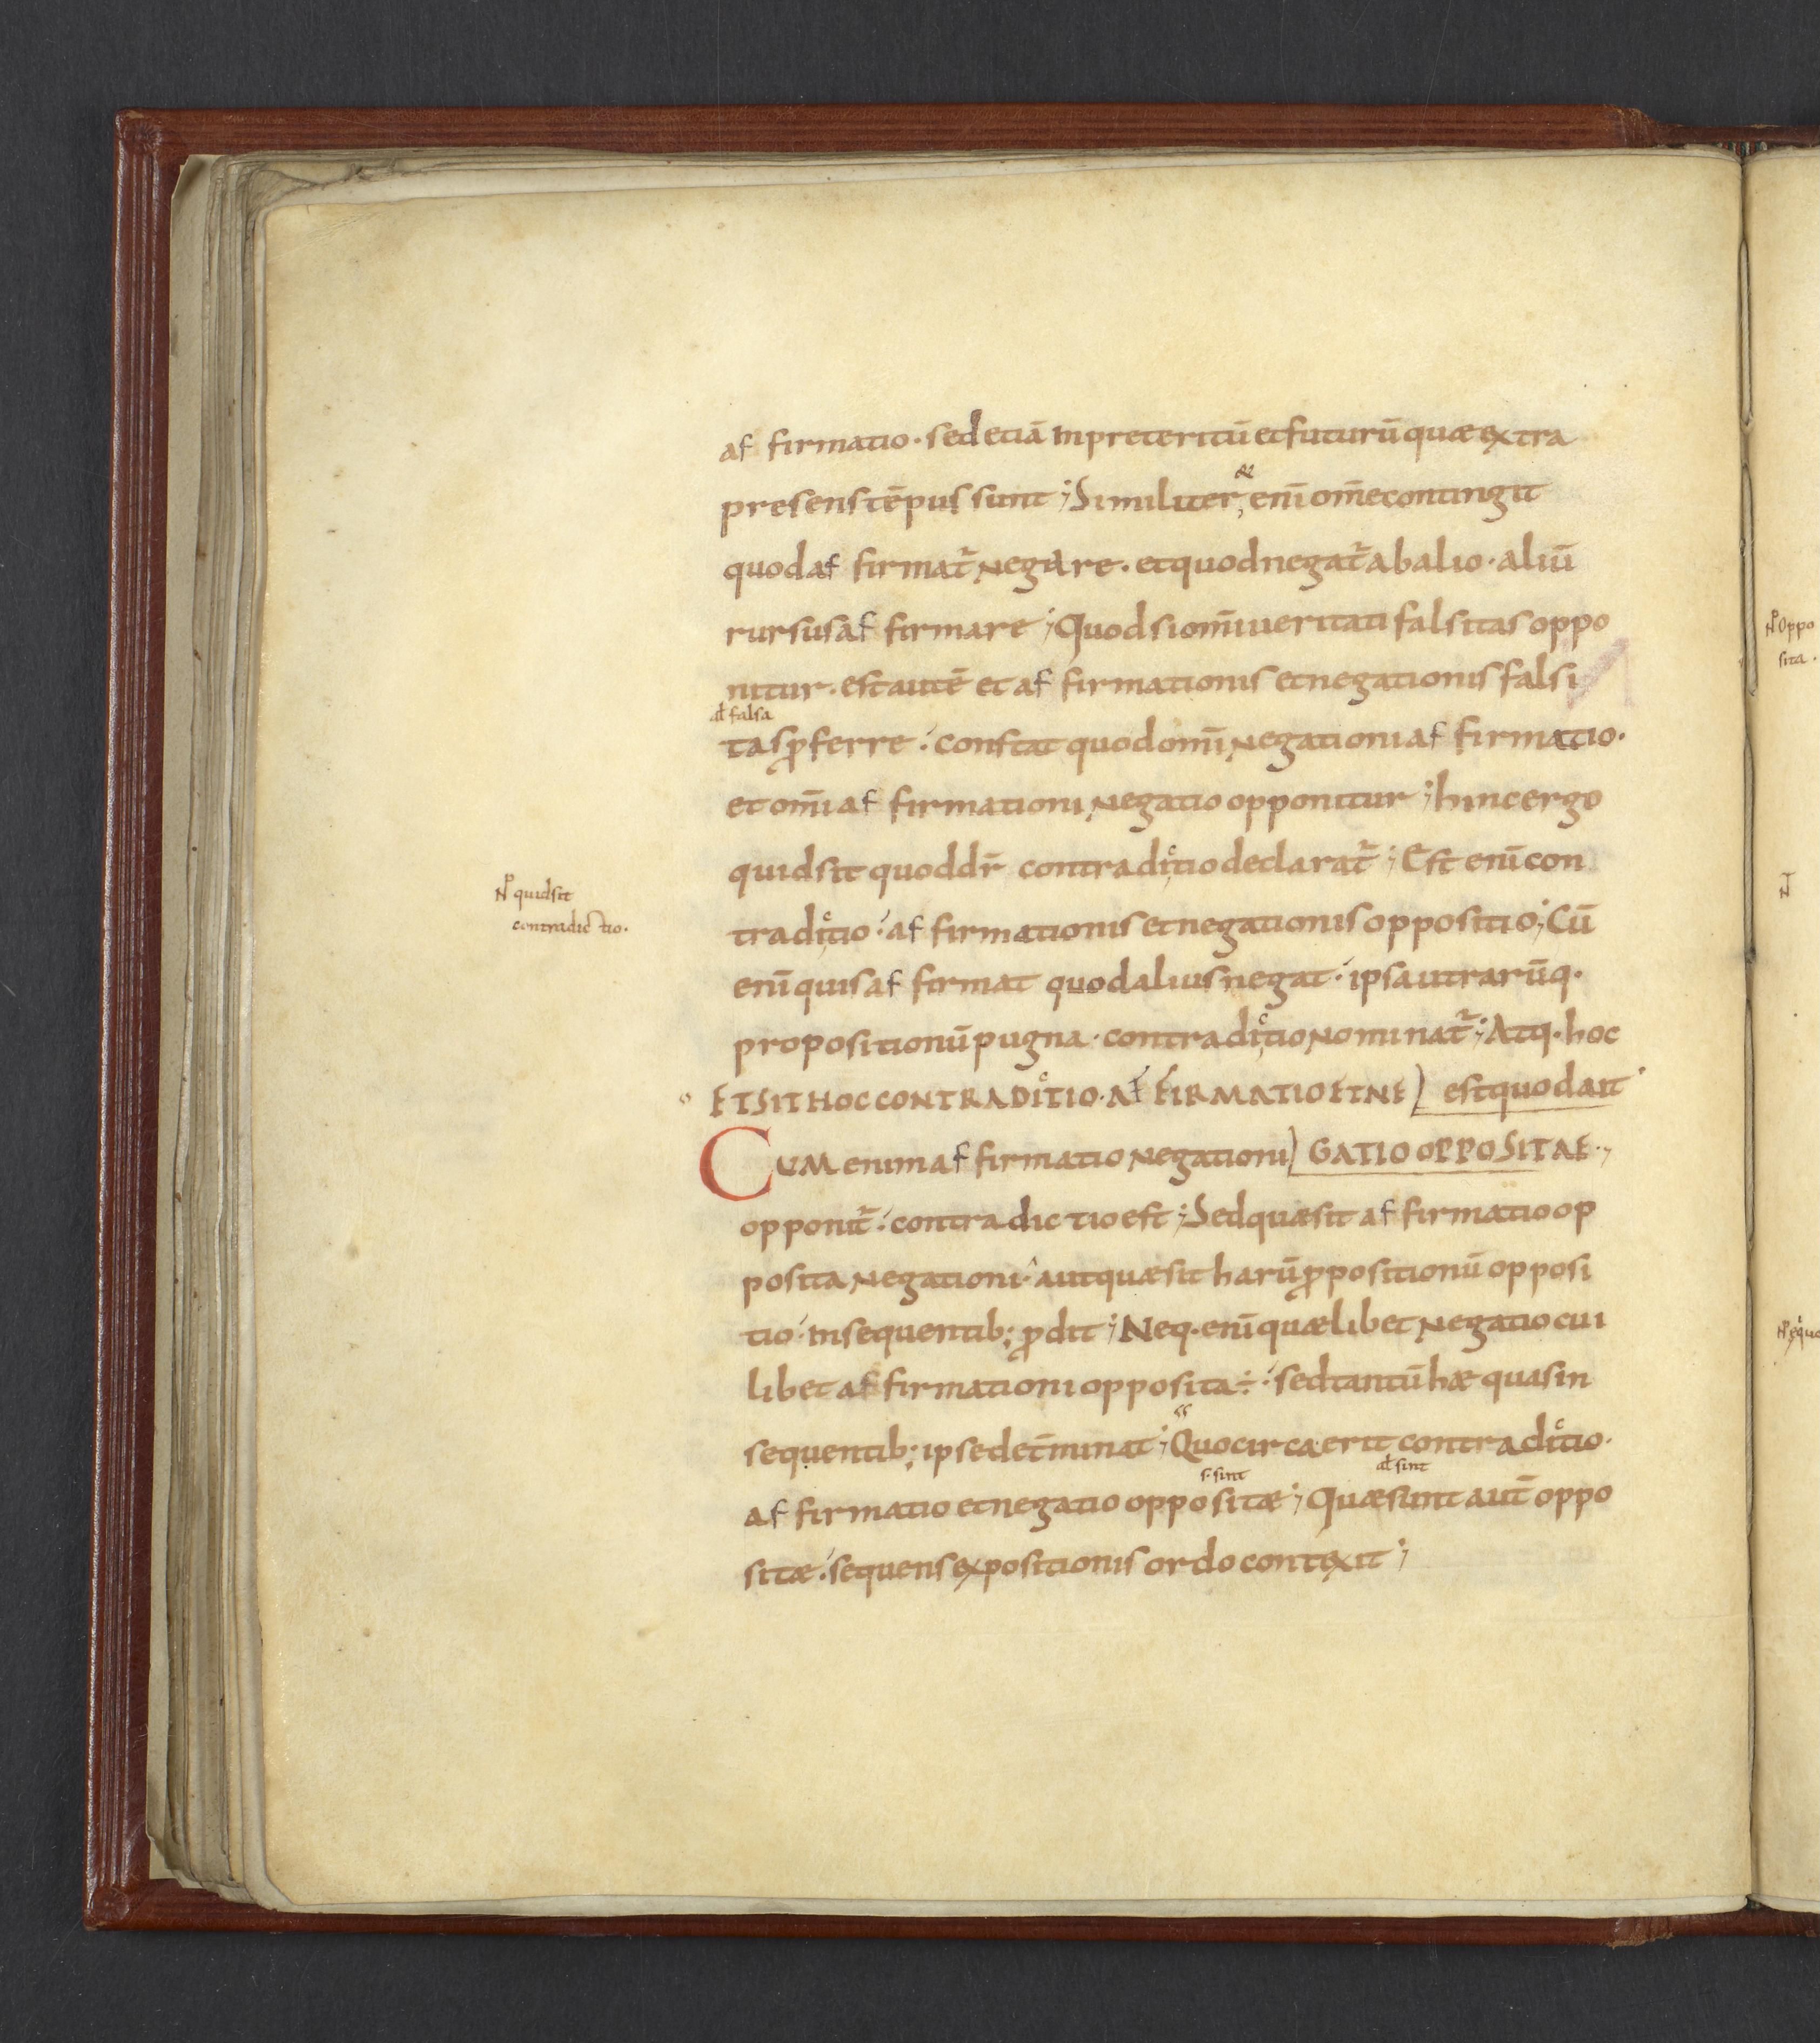 af firmatio · sed etiā in preteritū et futurū quæ extra
&
presens tēpus sunt ; Similiter, enī om̄e contingit
quod af firmat᷑ negare · et quod negat᷑ ab alio · aliū
rursus af firmare ; Quod si om̄i ueritati falsitas oppo
nitur · est autē et af firmationis et negationis falsi
al falsa
tas ꝓferre · constat quod om̄i negationi af firmatio ·
et om̄i af firmationi negatio opponitur ; hinc ergo
quid sit quod dr̄ contradicͨtio declarat᷑ ; Est enī con
N quid sit
contradictio ·
tradiͨtio · af firmationis et negationis oppositio ; Cū
enī quis af firmat quod alius negat · ipsa utrarūq ·
propositionū pugna · contradiͨtio nominat᷑ ; Atq · hoc
ET SIT HOC CONTRADIͨTIO · Af FIRMATIO ET NE) est quod ait
CUM enim af firmatio negationi) GATIO OPPOSITAE ·,
opponit᷑ · contradictio est ; Sed quæ sit af firmatio op
posita negationi · aut quæ sit harū ꝓpositionū opposi
tio · in sequentib; ꝓdit ; Neq · enī quælibet negatio cui
libet af firmationi opposita ÷ · sed tantū hæ quas in
sequentib; ipse det̄minat ; Quocirca erit contradiͨtio ·
s · sint al sint
af firmatio et negatio oppositæ ; Quæ sunt aut̄ oppo
sitæ · sequens expositionis ordo contexit ;
N Oppo
sita ·